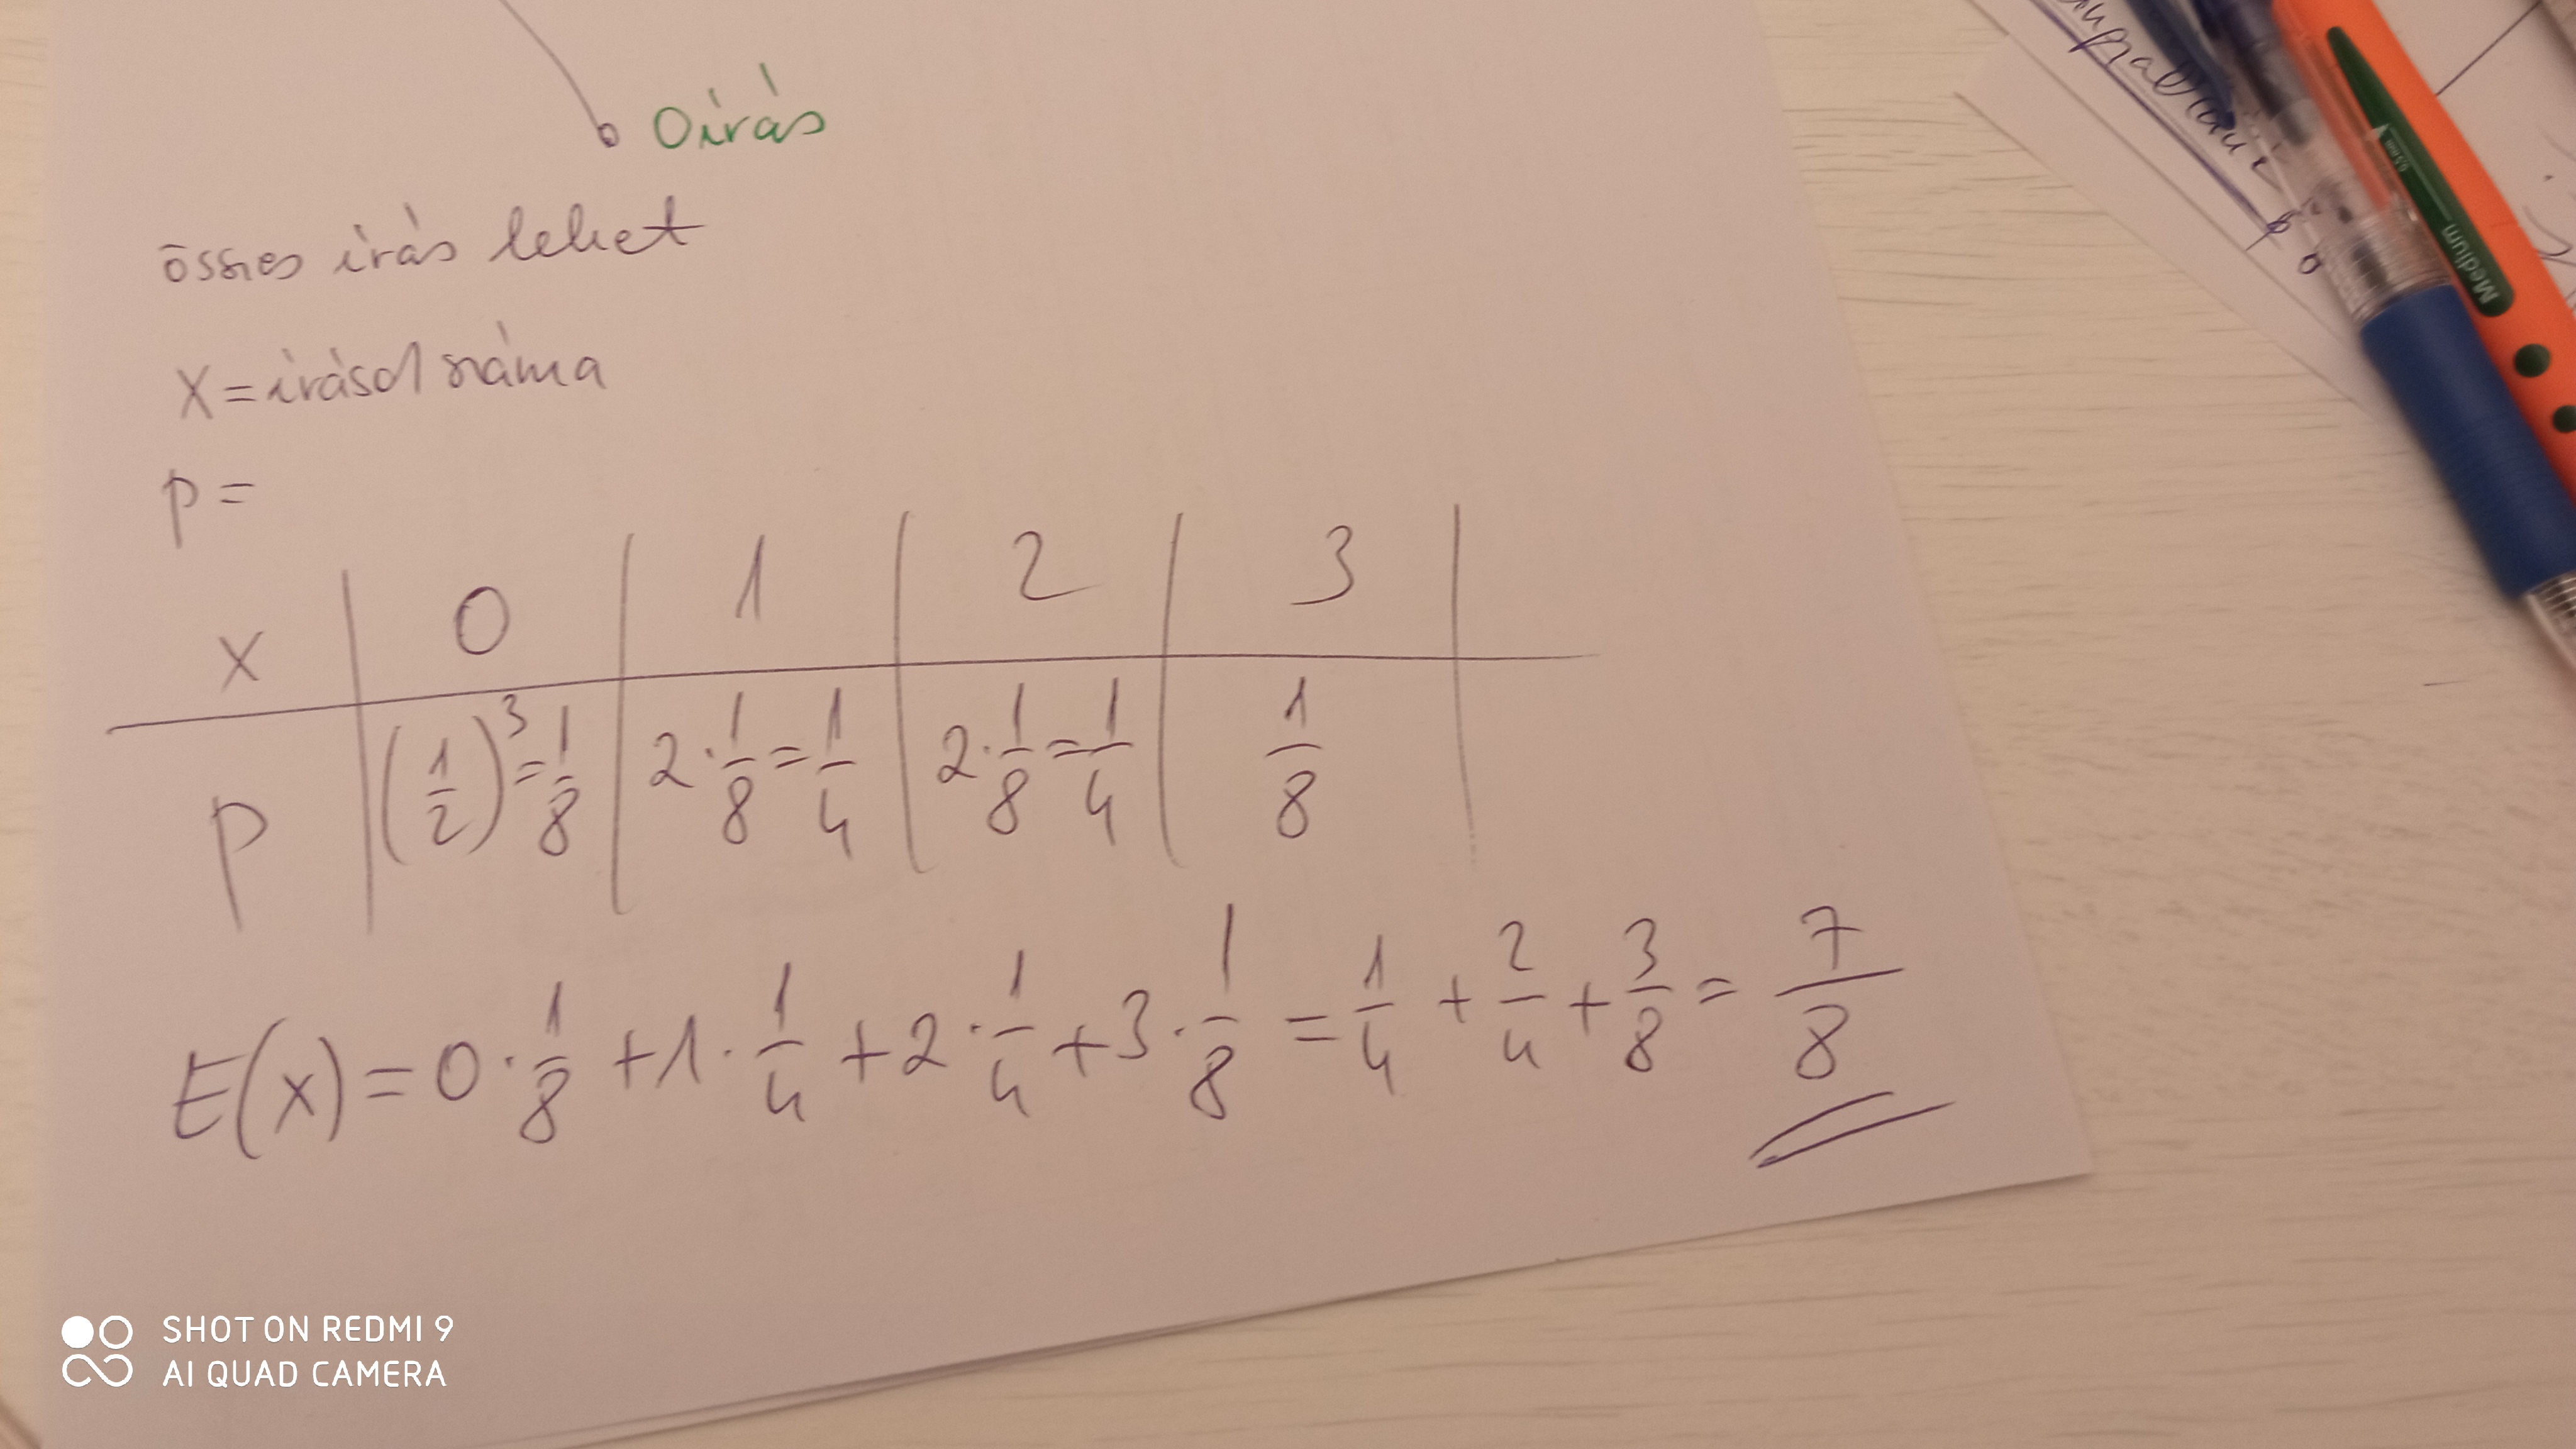 0írás
összes írás lehet
X = írások száma
p =
x | 0 | 1 | 2 | 3 |
p | (1/2)³ = 1/8 | 2 · 1/8 = 1/4 | 2 · 1/8 = 1/4 | 1/8 |
E(x) = 0 · 1/8 + 1 · 1/4 + 2 · 1/4 + 3 · 1/8 = 1/4 + 2/4 + 3/8 = 7/8
Medium
SHOT ON REDMI 9
AI QUAD CAMERA